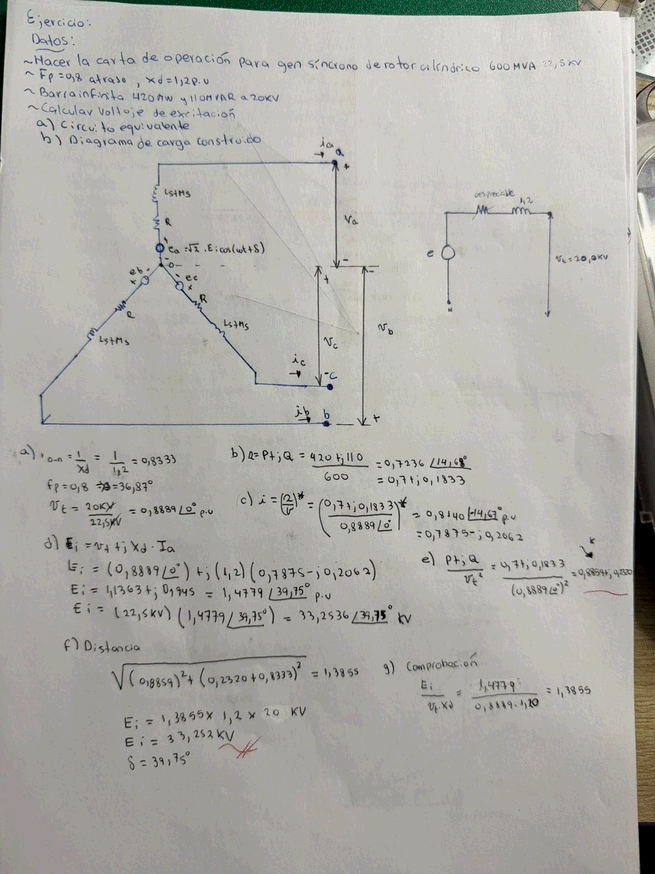 Ejercicio:
Datos:
~Hacer la carta de operación para gen síncrono de rotor cilíndrico 600MVA 22,5KV
~Fp=0,8 atraso, xd=1,2p.u
~Barra infinita 420Mw y 110MVAR a 20KV
~Calcular voltaje de exitación
a) Circuito equivalente
b) Diagrama de carga construido
ia
a
+
Ls+Ms
R
ea=√2·Ei cos(wt+δ)
Va
-
o
eb
ec
R
R
Ls+Ms
Ls+Ms
+
-
Vc
Vb
ic
-c
ib
b
+
despreciable
1,2
e
Vt=20,0KV
a) o-n = 1/Xd = 1/1,2 = 0,8333
fp=0,8 ∴θ=36,87°
Vt = 20KV/22,5KV = 0,8889∠0° p.u
b) S=P+jQ = (420+j110)/600 = 0,7236∠14,68°
= 0,7+j0,1833
c) i = (S/V)* = ((0,7+j0,1833)/0,8889∠0°)* = 0,8140∠-14,67° p.u
= 0,7875-j0,2062
d) Ei = Vt+jXd·Ia
Ei = (0,8889∠0°)+j(1,2)(0,7875-j0,2062)
Ei = 1,1363+j0,945 = 1,4779∠39,75° p.u
Ei = (22,5KV)(1,4779∠39,75°) = 33,2536∠39,75° KV
e) (P+jQ)/Vt² = (0,7+j0,1833)/(0,8889∠0°)² = 0,8859+j,2320
*
f) Distancia
√((0,8859)²+(0,2320+0,8333)²) = 1,3855
Ei = 1,3855x 1,2 x 20 KV
Ei = 33,252KV
δ = 39,75°
g) Comprobación
Ei/(Vt·Xd) = 1,4779/(0,8889·1,20) = 1,3855